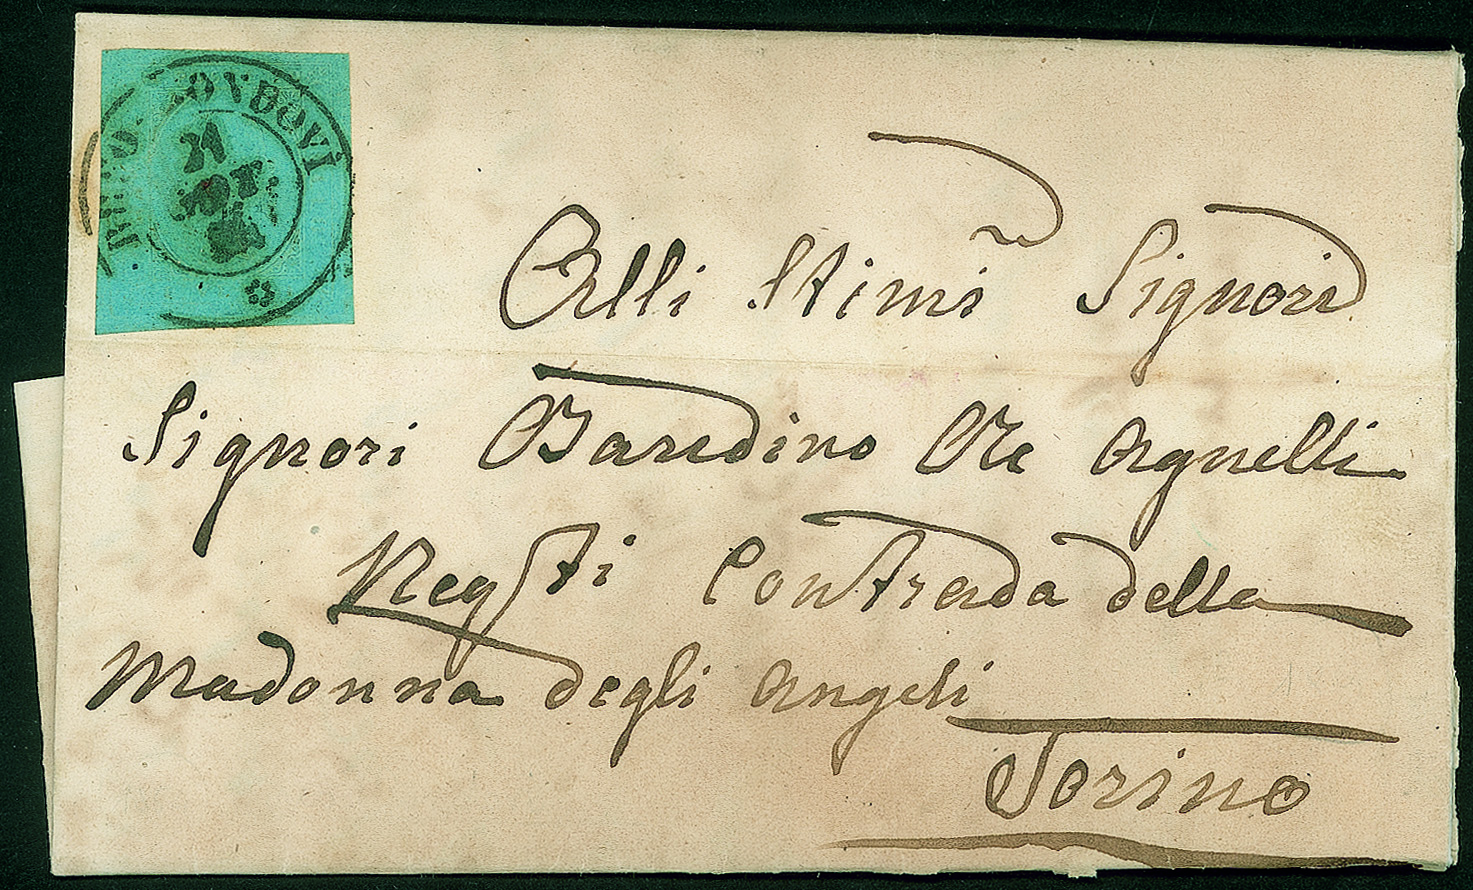 BREO-MONDOVI
21
Alli Stimi Signori
Signori Baredino Re Agnelli
Negsti Contrada della
Madonna degli Angeli
Torino